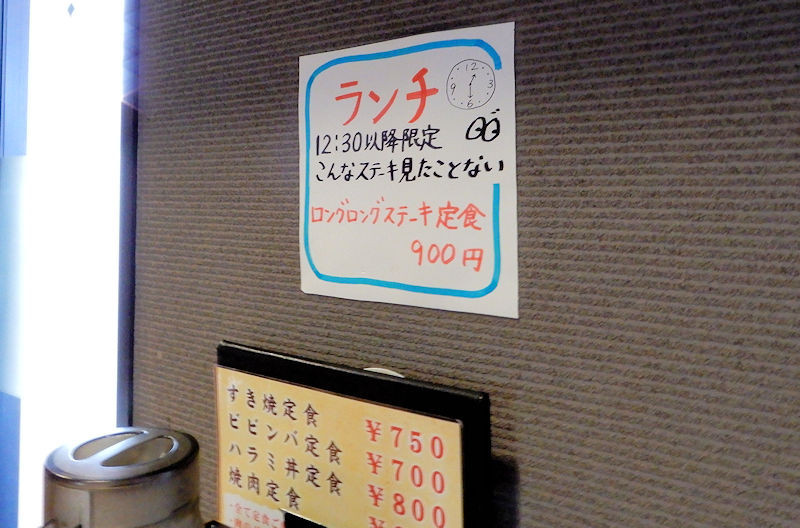 ランチ
12
9 3
6
12:30以降限定
こんなステーキ見たことない
ロングロングステーキ定食
900円
すき焼定食 ¥750
ビビンバ定食 ¥700
ハラミ丼定食 ¥800
焼肉定食